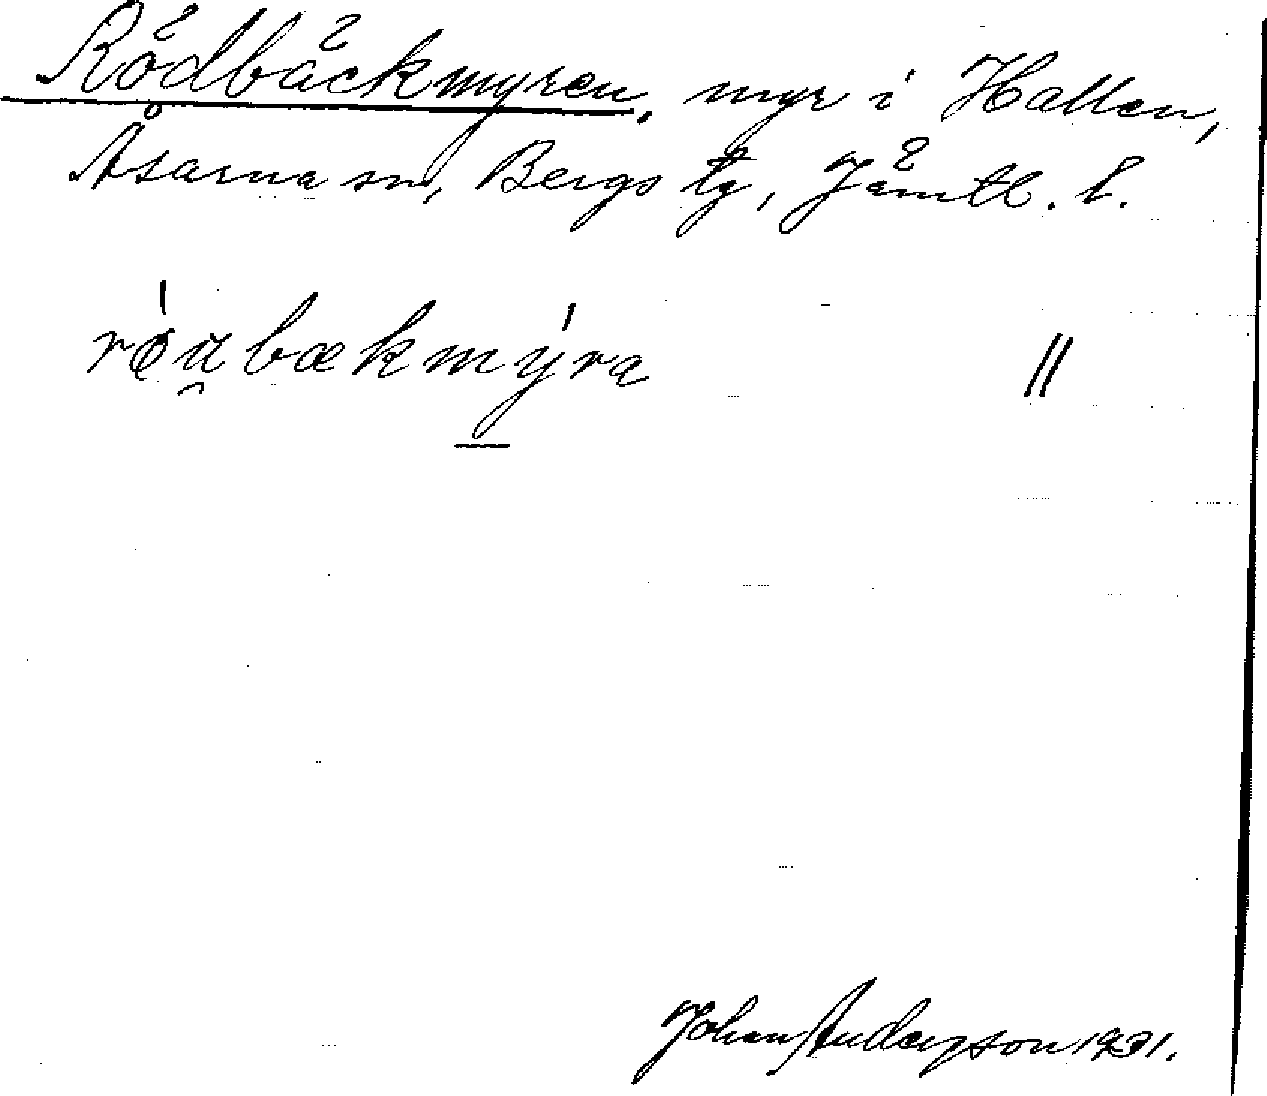 Rödbäckmyren, myr i Hallen,
Åsarna sn, Bergs tg, Jämtl. l.
rǿu̯bækmýra //
Johan Anderson 1931.